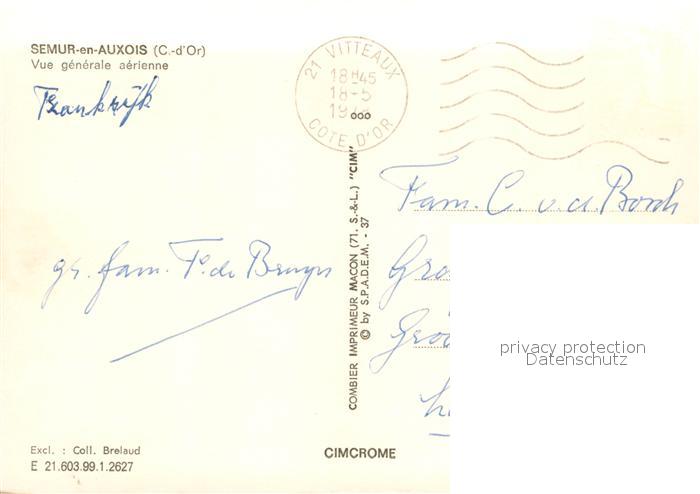 SEMUR-en-AUXOIS (C.-d'Or)
Vue générale aérienne
Frankrijk
21 VITTEAUX
18H45
18-5
COTE D'OR
gr. fam. P. de Bruyn
COMBIER IMPRIMEUR MACON (71. S.-&-L.) "CIM"
© by S.P.A.D.E.M. - 37
Fam. C. v.d. Borch
privacy protection
Datenschutz
Excl. : Coll. Brelaud
E 21.603.99.1.2627
CIMCROME